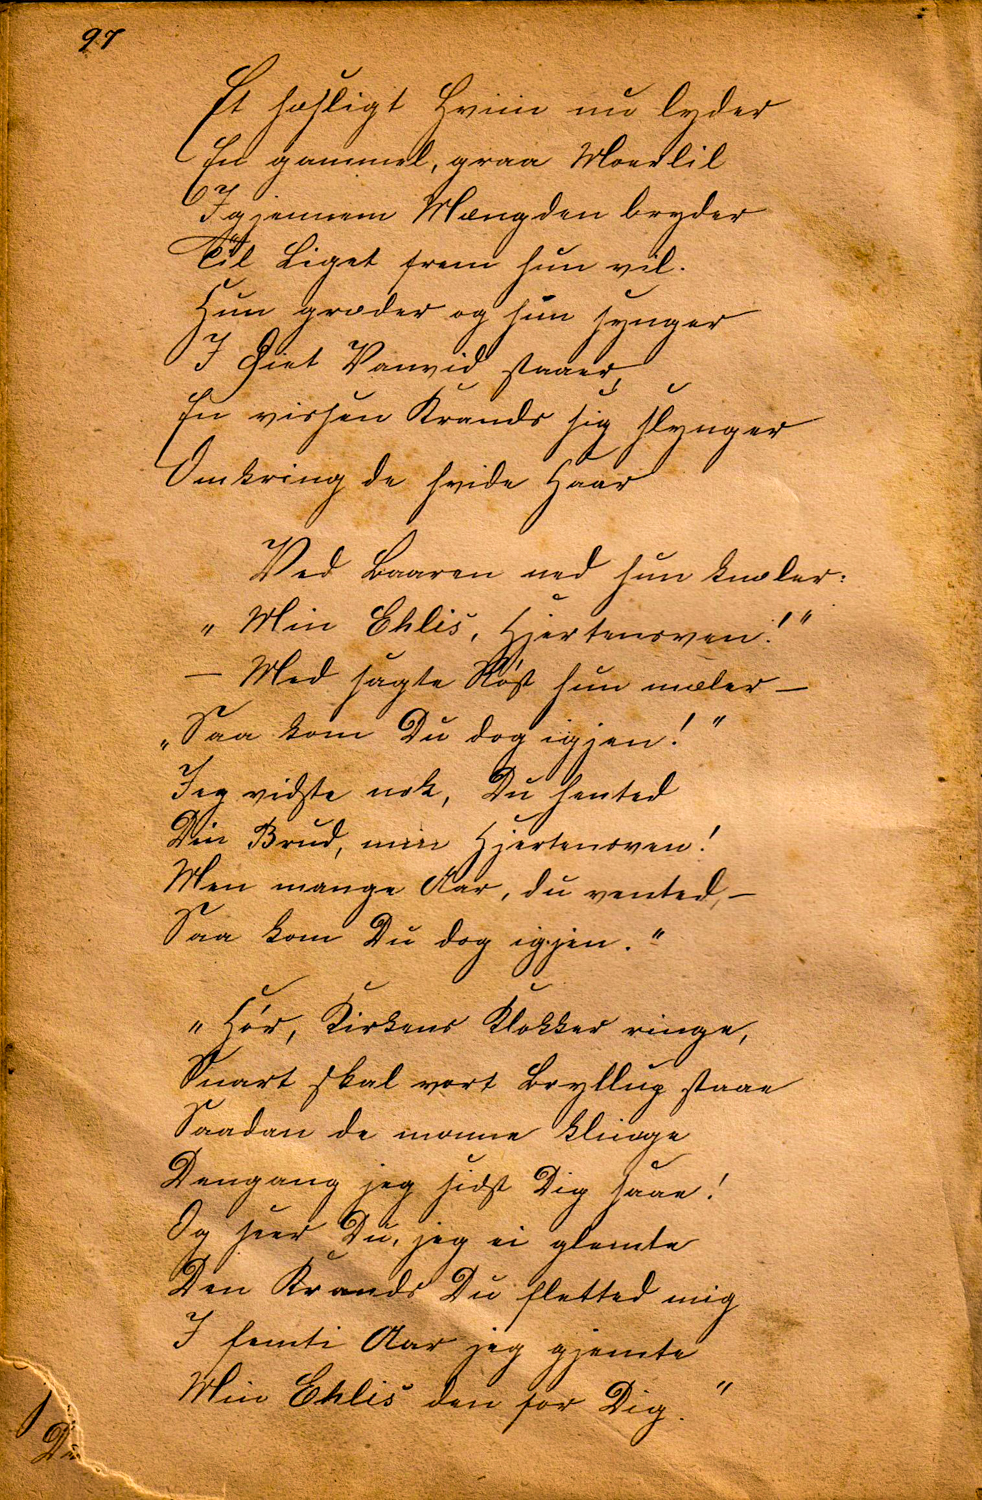 97
Et hæsligt Hviin nu lyder
En gammel, graa Moerlil
Igjennem Mængden bryder
Til Liget frem hun vil.
Hun græder og hun synger
I Øiet Vanvid staaer,
En vissen Krands sig slynger
Omkring de hvide Haar
Ved Baaren ned hun knæler:
„Min Ehlis, Hjertensven!"
— Med sagte Røst hun mæler —
„Saa kom Du dog igjen!"
Jeg vidste nok, Du hented
Din Brud, min Hjertensven!
Men mange Aar, du vented, —
Saa kom Du dog igjen."
„Hør, Kirkens Klokker ringe,
Snart skal vort Bryllup staae
Saadan de monne klinge
Dengang jeg sidst Dig saae!
Og seer Du, jeg ei glemte
Den Krands Du fletted mig
I femti Aar jeg gjemte
Min Ehlis den for Dig."
Du